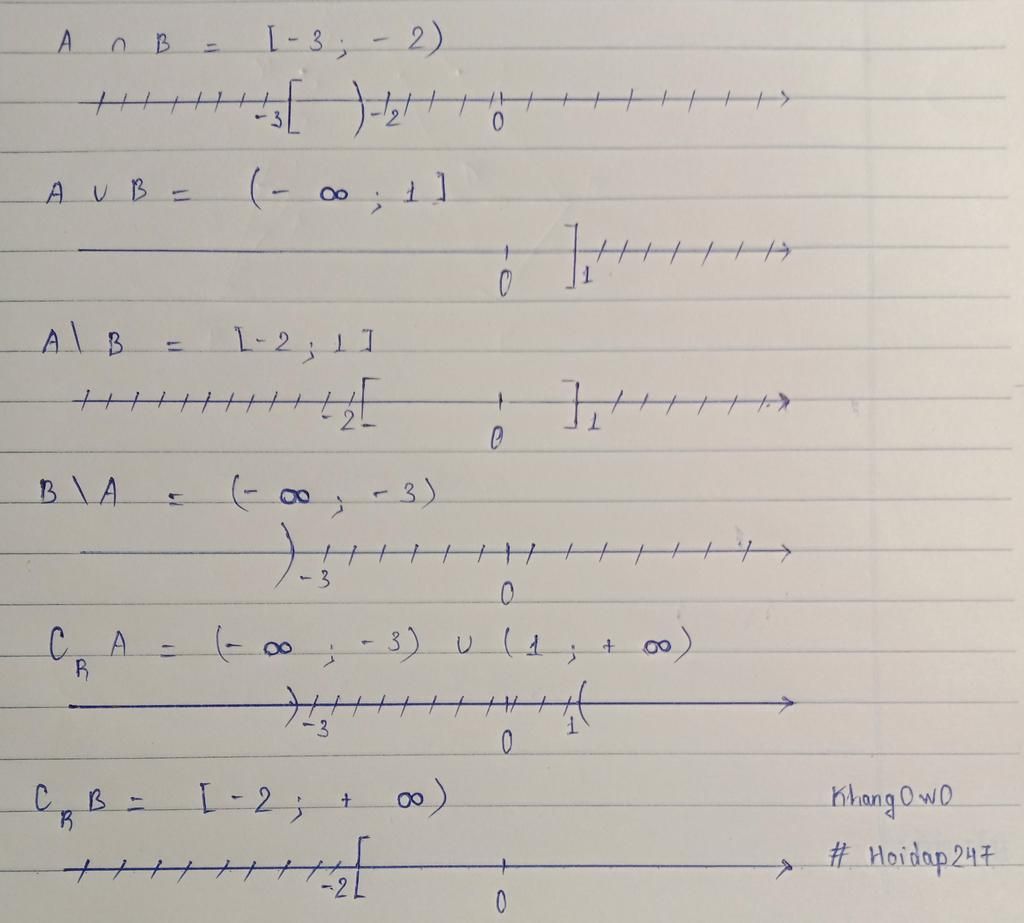 A ∩ B = [-3; -2)
-3 [ ) -2 0
A ∪ B = (-∞; 1]
0 ] 1
A \ B = [-2; 1]
-2 [ 0 ] 1
B \ A = (-∞; -3)
) -3 0
C_R A = (-∞; -3) ∪ (1; +∞)
) -3 0 1 (
C_R B = [-2; +∞)
KhangOwO
-2 [ 0
# Hoidap247